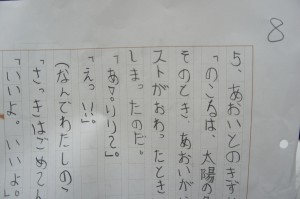 8
5、あおいとのきず
「のこるは、太陽の
そのとき、あおいが
ストがおわったとき
しまったのだ。
「えっ!!」。
(なんでわたしの
「さっきはご
「いいよ。いいよ。